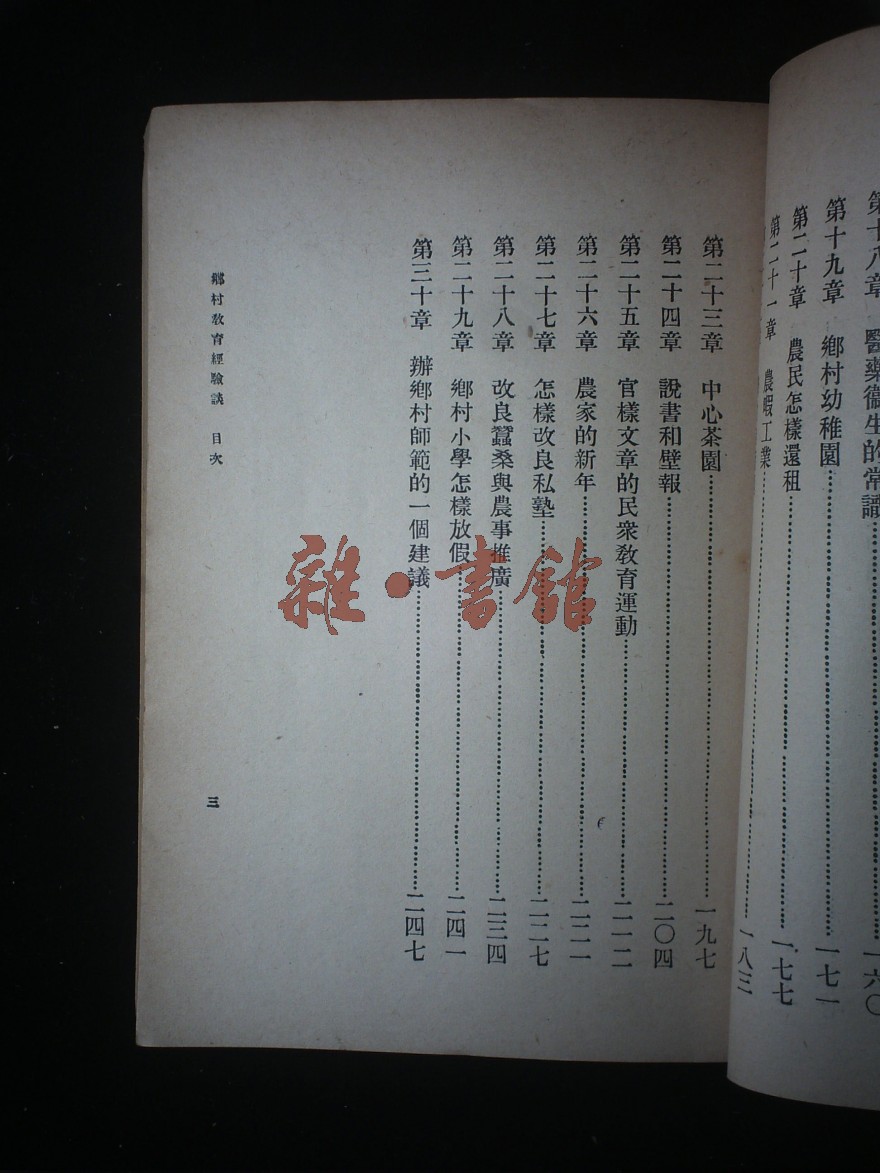 第十八章 醫藥衞生的常識 一六〇
第十九章 鄉村幼稚園 一七一
第二十章 農民怎樣還租 一七七
第二十一章 農暇工業 一八三
第二十三章 中心茶園 一九七
第二十四章 說書和壁報 二〇四
第二十五章 官樣文章的民衆敎育運動 二一二
第二十六章 農家的新年 二二一
第二十七章 怎樣改良私塾 二二七
第二十八章 改良蠶桑與農事推廣 二三四
第二十九章 鄉村小學怎樣放假 二四一
第三十章 辦鄉村師範的一個建議 二四七
鄉村敎育經驗談 目次
三
雜·書館